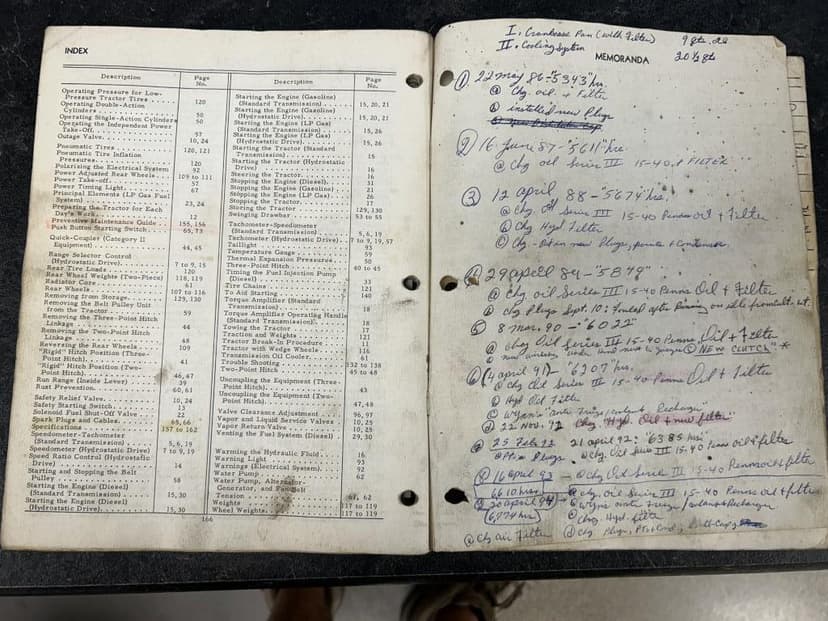 INDEX
Description
Page No.
Operating Pressure for Low-
Pressure Tractor Tires . . . . . 120
Operating Double-Action
Cylinders . . . . . 50
Operating Single-Action Cylinders 50
Operating the Independent Power
Take-Off. . . . . 57
Outage Valve. . . . . 10, 24
Pneumatic Tires . . . . . 120, 121
Pneumatic Tire Inflation
Pressures. . . . . 120
Polarizing the Electrical System 92
Power Adjusted Rear Wheels . . . 109 to 111
Power Take-off. . . . . 57
Power Timing Light. . . . . 67
Principal Elements (LP Gas Fuel
System) . . . . . 23, 24
Preparing the Tractor for Each
Day's Work. . . . . 12
Preventive Maintenance Guide. . . 155, 156
Push Button Starting Switch. . . 65, 73
Quick-Coupler (Category II
Equipment) . . . . . 44, 45
Range Selector Control
(Hydrostatic Drive) . . . . . 7 to 9, 15
Rear Tire Loads . . . . . 120
Rear Wheel Weights (Two-Piece) 118, 119
Radiator Core . . . . . 61
Rear Wheels . . . . . 107 to 116
Removing from Storage. . . . . 129, 130
Removing the Belt Pulley Unit
from the Tractor . . . . . 59
Removing the Three-Point Hitch
Linkage . . . . . 44
Removing the Two-Point Hitch
Linkage . . . . . 48
Reversing the Rear Wheels . . . 109
"Rigid" Hitch Position (Three-
Point Hitch). . . . . 41
"Rigid" Hitch Position (Two-
Point Hitch). . . . . 46, 47
Run Range (Inside Lever) . . . . 39
Rust Prevention. . . . . 60, 61
Safety Relief Valve. . . . . 10, 24
Safety Starting Switch . . . . . 13
Solenoid Fuel Shut-Off Valve . . 22
Spark Plugs and Cables. . . . . 65, 66
Specifications. . . . . 157 to 162
Speedometer-Tachometer
(Standard Transmission). . . . . 5, 6, 19
Speedometer (Hydrostatic Drive) 7 to 9, 19
Speed Ratio Control (Hydrostatic
Drive) . . . . . 14
Starting and Stopping the Belt
Pulley . . . . . 58
Starting the Engine (Diesel)
(Standard Transmission) . . . . . 15, 30
Starting the Engine (Diesel)
(Hydrostatic Drive). . . . . 15, 30
Description
Page No.
Starting the Engine (Gasoline)
(Standard Transmission) . . . . . 15, 20, 21
Starting the Engine (Gasoline)
(Hydrostatic Drive). . . . . 15, 20, 21
Starting the Engine (LP Gas)
(Standard Transmission) . . . . . 15, 26
Starting the Engine (LP Gas)
(Hydrostatic Drive). . . . . 15, 26
Starting the Tractor (Standard
Transmission). . . . . 16
Starting the Tractor (Hydrostatic
Drive) . . . . . 16
Steering the Tractor. . . . . 16
Stopping the Engine (Diesel) . . 31
Stopping the Engine (Gasoline) 21
Stopping the Engine (LP Gas) . . 26
Stopping the Tractor. . . . . 17
Storing the Tractor . . . . . 129, 130
Swinging Drawbar . . . . . 53 to 55
Tachometer-Speedometer
(Standard Transmission) . . . . . 5, 6, 19
Tachometer (Hydrostatic Drive). . 7 to 9, 19, 57
Taillight . . . . . 93
Temperature Gauge . . . . . 59
Thermal Expansion Pressures. . . 50
Three-Point Hitch . . . . . 40 to 45
Timing the Fuel Injection Pump
(Diesel) . . . . . 33
Tire Chains. . . . . 121
To Aid Starting . . . . . 140
Torque Amplifier (Standard
Transmission). . . . . 18
Torque Amplifier Operating Handle
(Standard Transmission) . . . . . 18
Towing the Tractor . . . . . 17
Traction and Weights . . . . . 121
Tractor Break-In Procedure . . . 11
Tractor with Wedge Wheels . . . 116
Transmission Oil Cooler. . . . . 61
Trouble Shooting . . . . . 132 to 138
Two-Point Hitch . . . . . 45 to 48
Uncoupling the Equipment (Three-
Point Hitch). . . . . 43
Uncoupling the Equipment (Two-
Point Hitch). . . . . 47, 48
Valve Clearance Adjustment . . . 96, 97
Vapor and Liquid Service Valves 10, 25
Vapor Return Valve . . . . . 10, 25
Venting the Fuel System (Diesel) 29, 30
Warming the Hydraulic Fluid . . 16
Warning Light . . . . . 93
Warnings (Electrical System). . . 92
Water Pump. . . . . 62
Water Pump, Alternator-
Generator, and Fan Belt
Tension . . . . . 61, 62
Weights . . . . . 117 to 119
Wheel Weights. . . . . 117 to 119
166
I. Crankcase Pan (with Filter) 9 qts.
II. Cooling System 20 1/2 qts
MEMORANDA
① 22 may 86 - "5343" hr.
ⓐ Chg. oil + Filter
ⓑ installed new Plugs
② 16 June 87 - "5611" hrs.
ⓐ Chg oil Series III 15-40, + FILTER
③ 12 april 88 - "5674" hrs.
ⓐ Chg Oil Series III 15-40 Penns oil + Filter
ⓑ Chg Hyd Filter
ⓒ Chg - new Plugs, points + Condenser
④ 29 april 89 - "5879"
ⓐ Chg. oil Series III 15-40 Penns Oil + Filter
ⓑ chg Plugs Sept. 10;
⑤ 8 Mar. 90 - "6022"
ⓐ Chg Oil Series III 15-40 Penns Oil + Filter
"NEW CLUTCH" *
⑥ 4 april 91 - "6207" hrs.
ⓐ Chg Oil Series III 15-40 Penns Oil + Filter
ⓑ Hyd Oil Filter
ⓓ 22 Nov. 92 Chg. Hyd. Oil + new filter"
25 Feb 92 21 april 92: "6385 hrs"
Plugs Chg. Oil Series III 15-40 Penns oil + filter
16 april 93 - ⓐ Chg Oil Series III 15-40 Penns oil + filter
(6610 hrs) ⓐ chg. oil Series III 15-40 Penns oil + filter
20 april 94
(6,774 hrs) ⓒ Chg. Hyd. filter
ⓔ Chg air Filter ⓓ Chg Plugs,